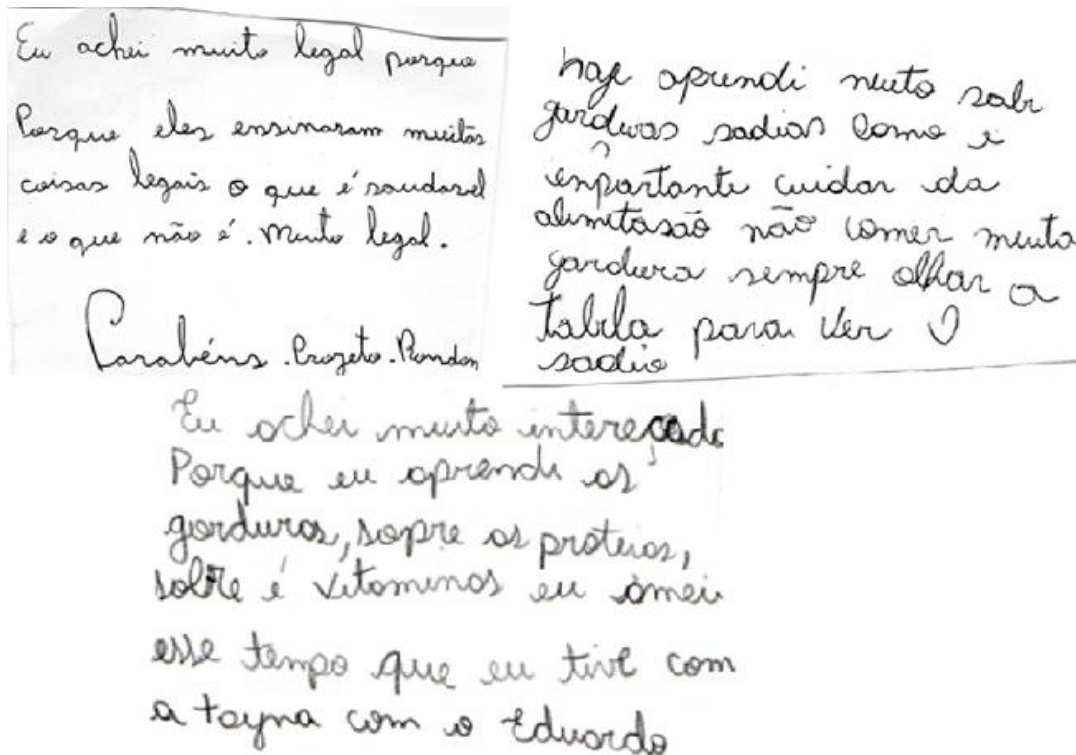 Eu achei muito legal porque
Porque eles ensinaram muitas
coisas legais o que é saudavel
e o que não é. Muito legal.
Parabéns. Projeto. Rondon
hoje aprendi muito sobr
garduras sadias como e
enportante cuidar da
alimitasão não comer muita
gardura sempre olhar a
tabela para ver ♡
sadio
Eu achei muito intereçado
Porque eu aprendi as
gorduras, sopre as proteias,
sobre é vitaminas eu amei
esse tempo que eu tive com
a tayna com o Eduardo